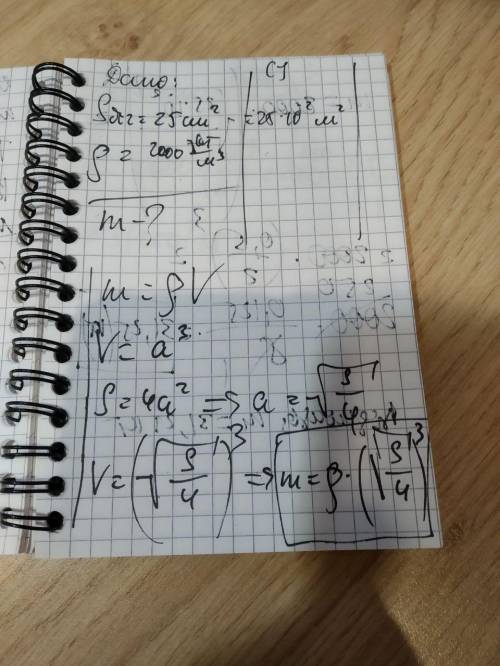 Дано:
СИ
= 25 см² = 25·10 м²
ρ = 2000 кг/м³
m - ?
m = ρV
V = a³
S = 4a² => a = √(S/4)
V = (√(S/4))³ => m = ρ·(√(S/4))³